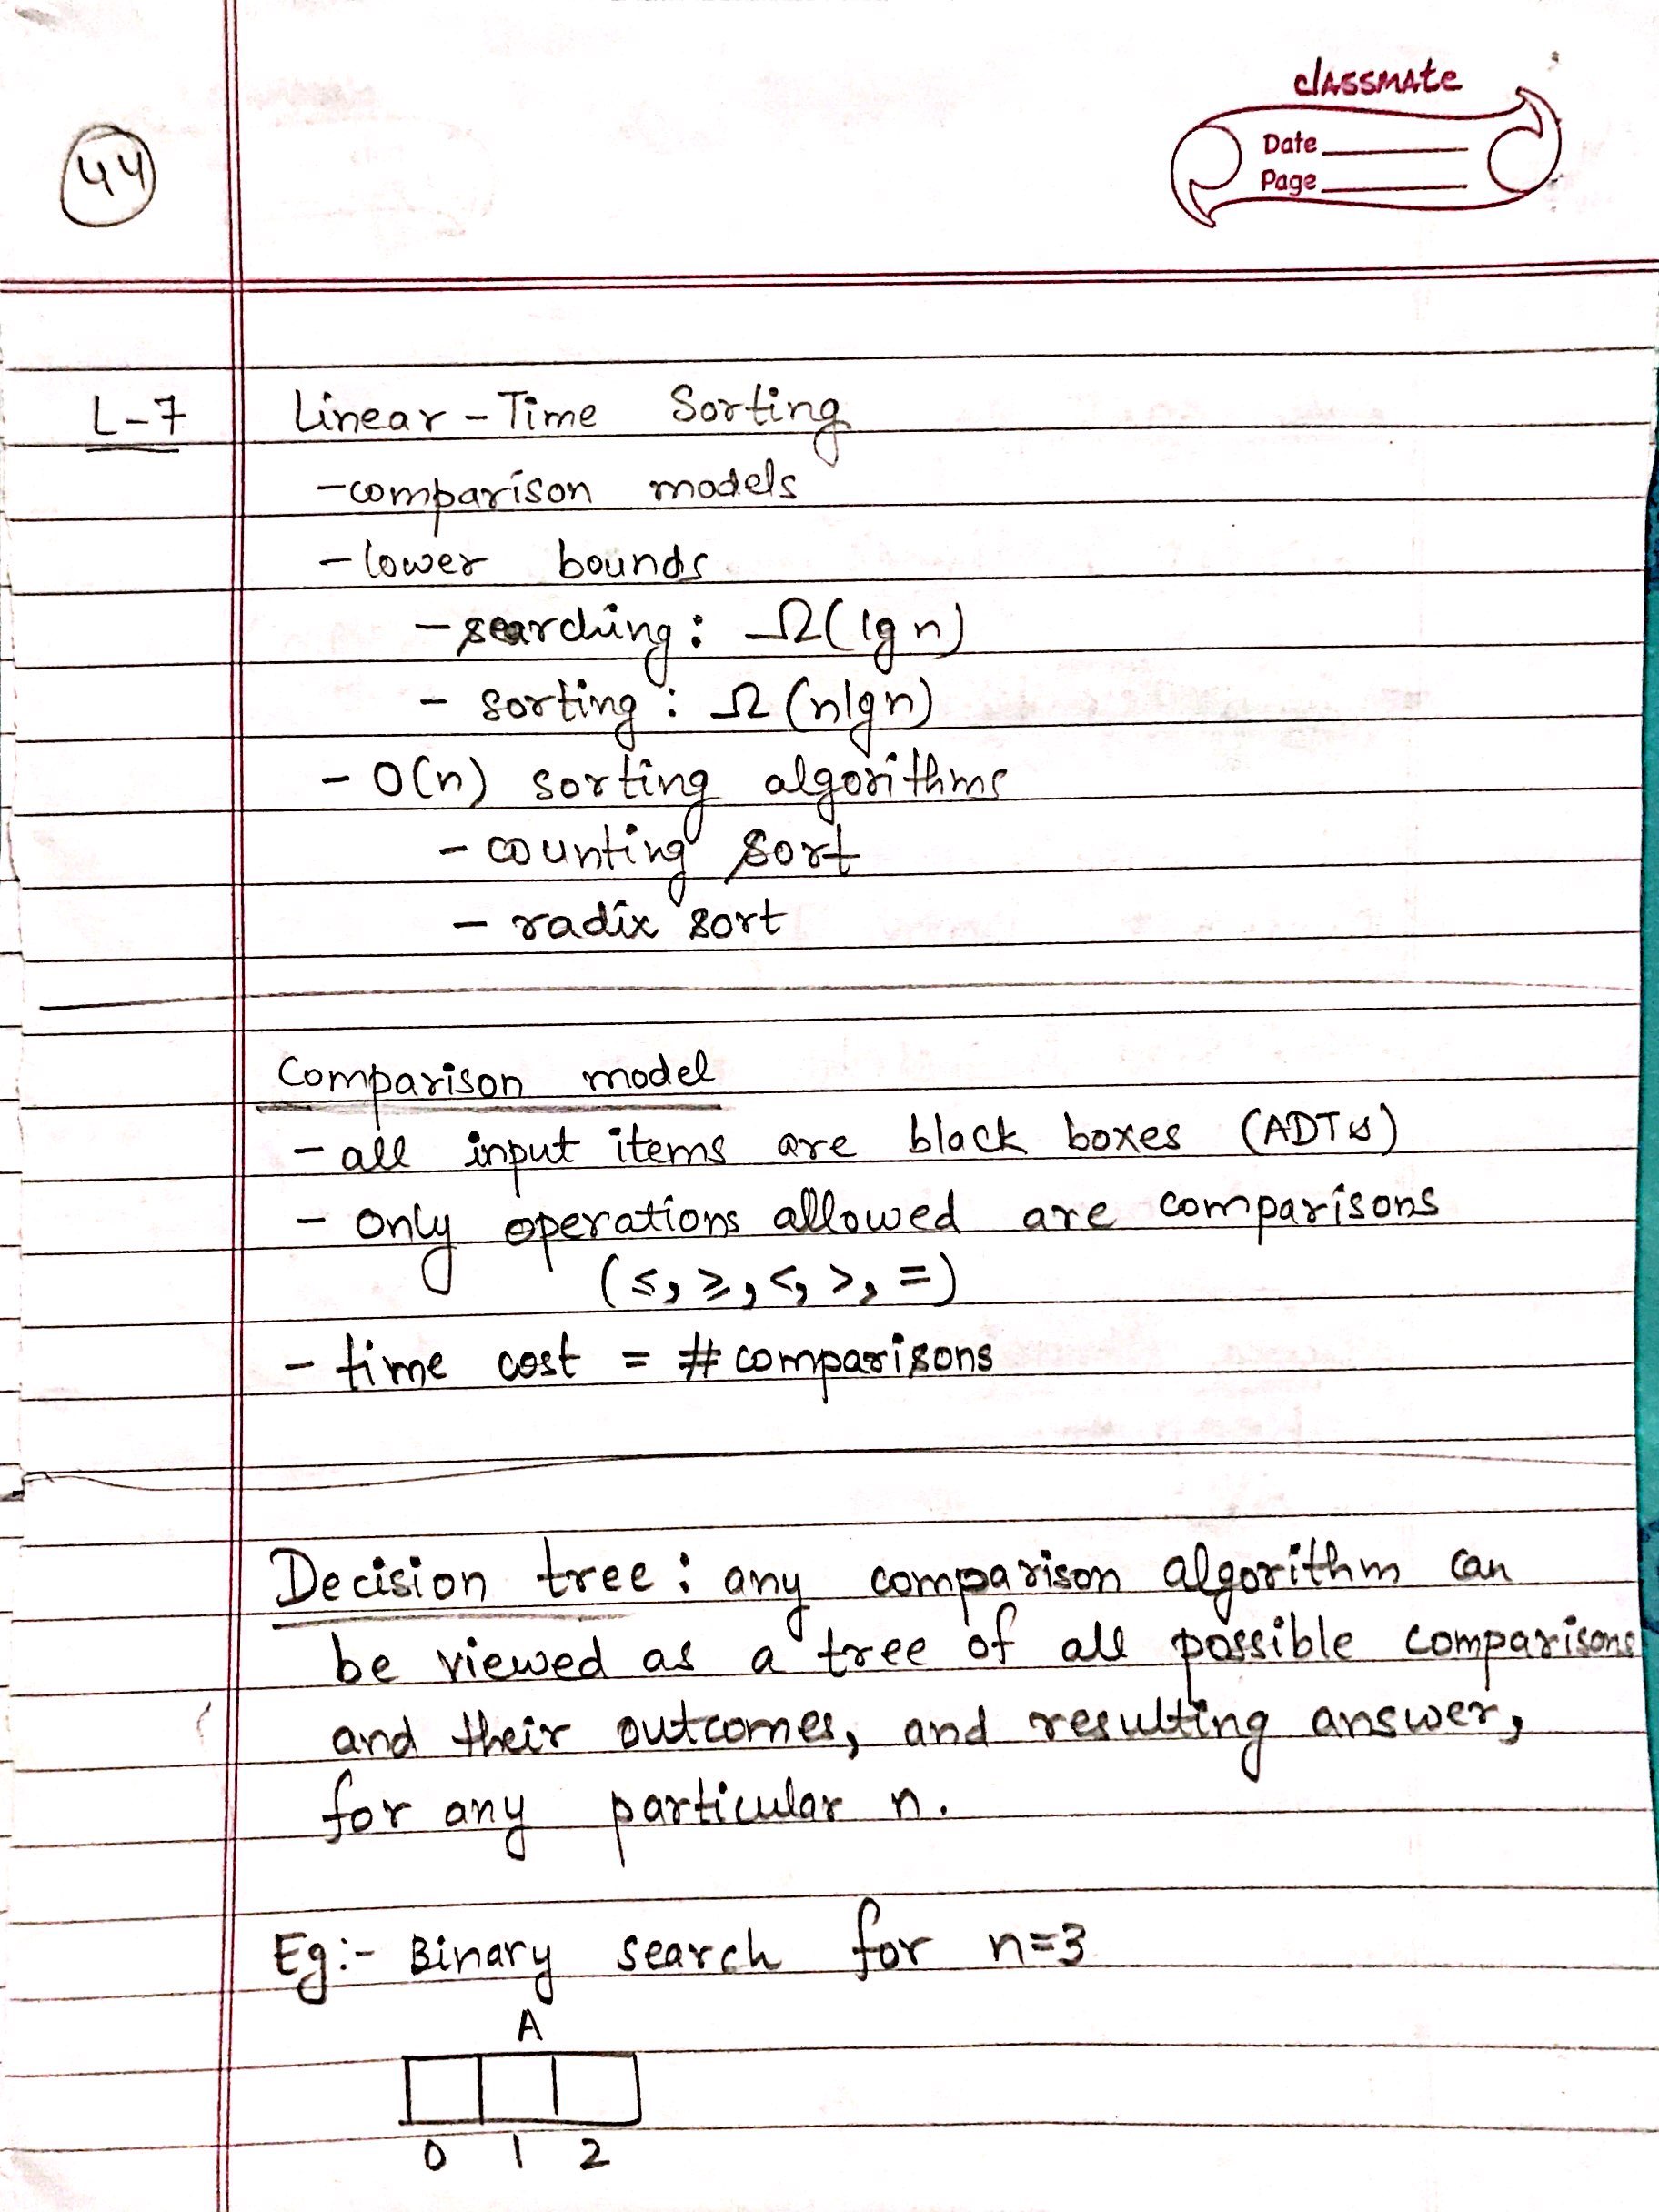 classmate
Date
Page
44
L-7 Linear-Time Sorting
-comparison models
- lower bounds
- searching: Ω(lg n)
- sorting: Ω(nlgn)
- O(n) sorting algorithms
- counting sort
- radix sort
Comparison model
- all input items are black boxes (ADTs)
- only operations allowed are comparisons
(≤, ≥, <, >, =)
- time cost = # comparisons
Decision tree: any comparison algorithm can
be viewed as a tree of all possible comparisons
and their outcomes, and resulting answer,
for any particular n.
Eg:- Binary search for n=3
A
0 1 2